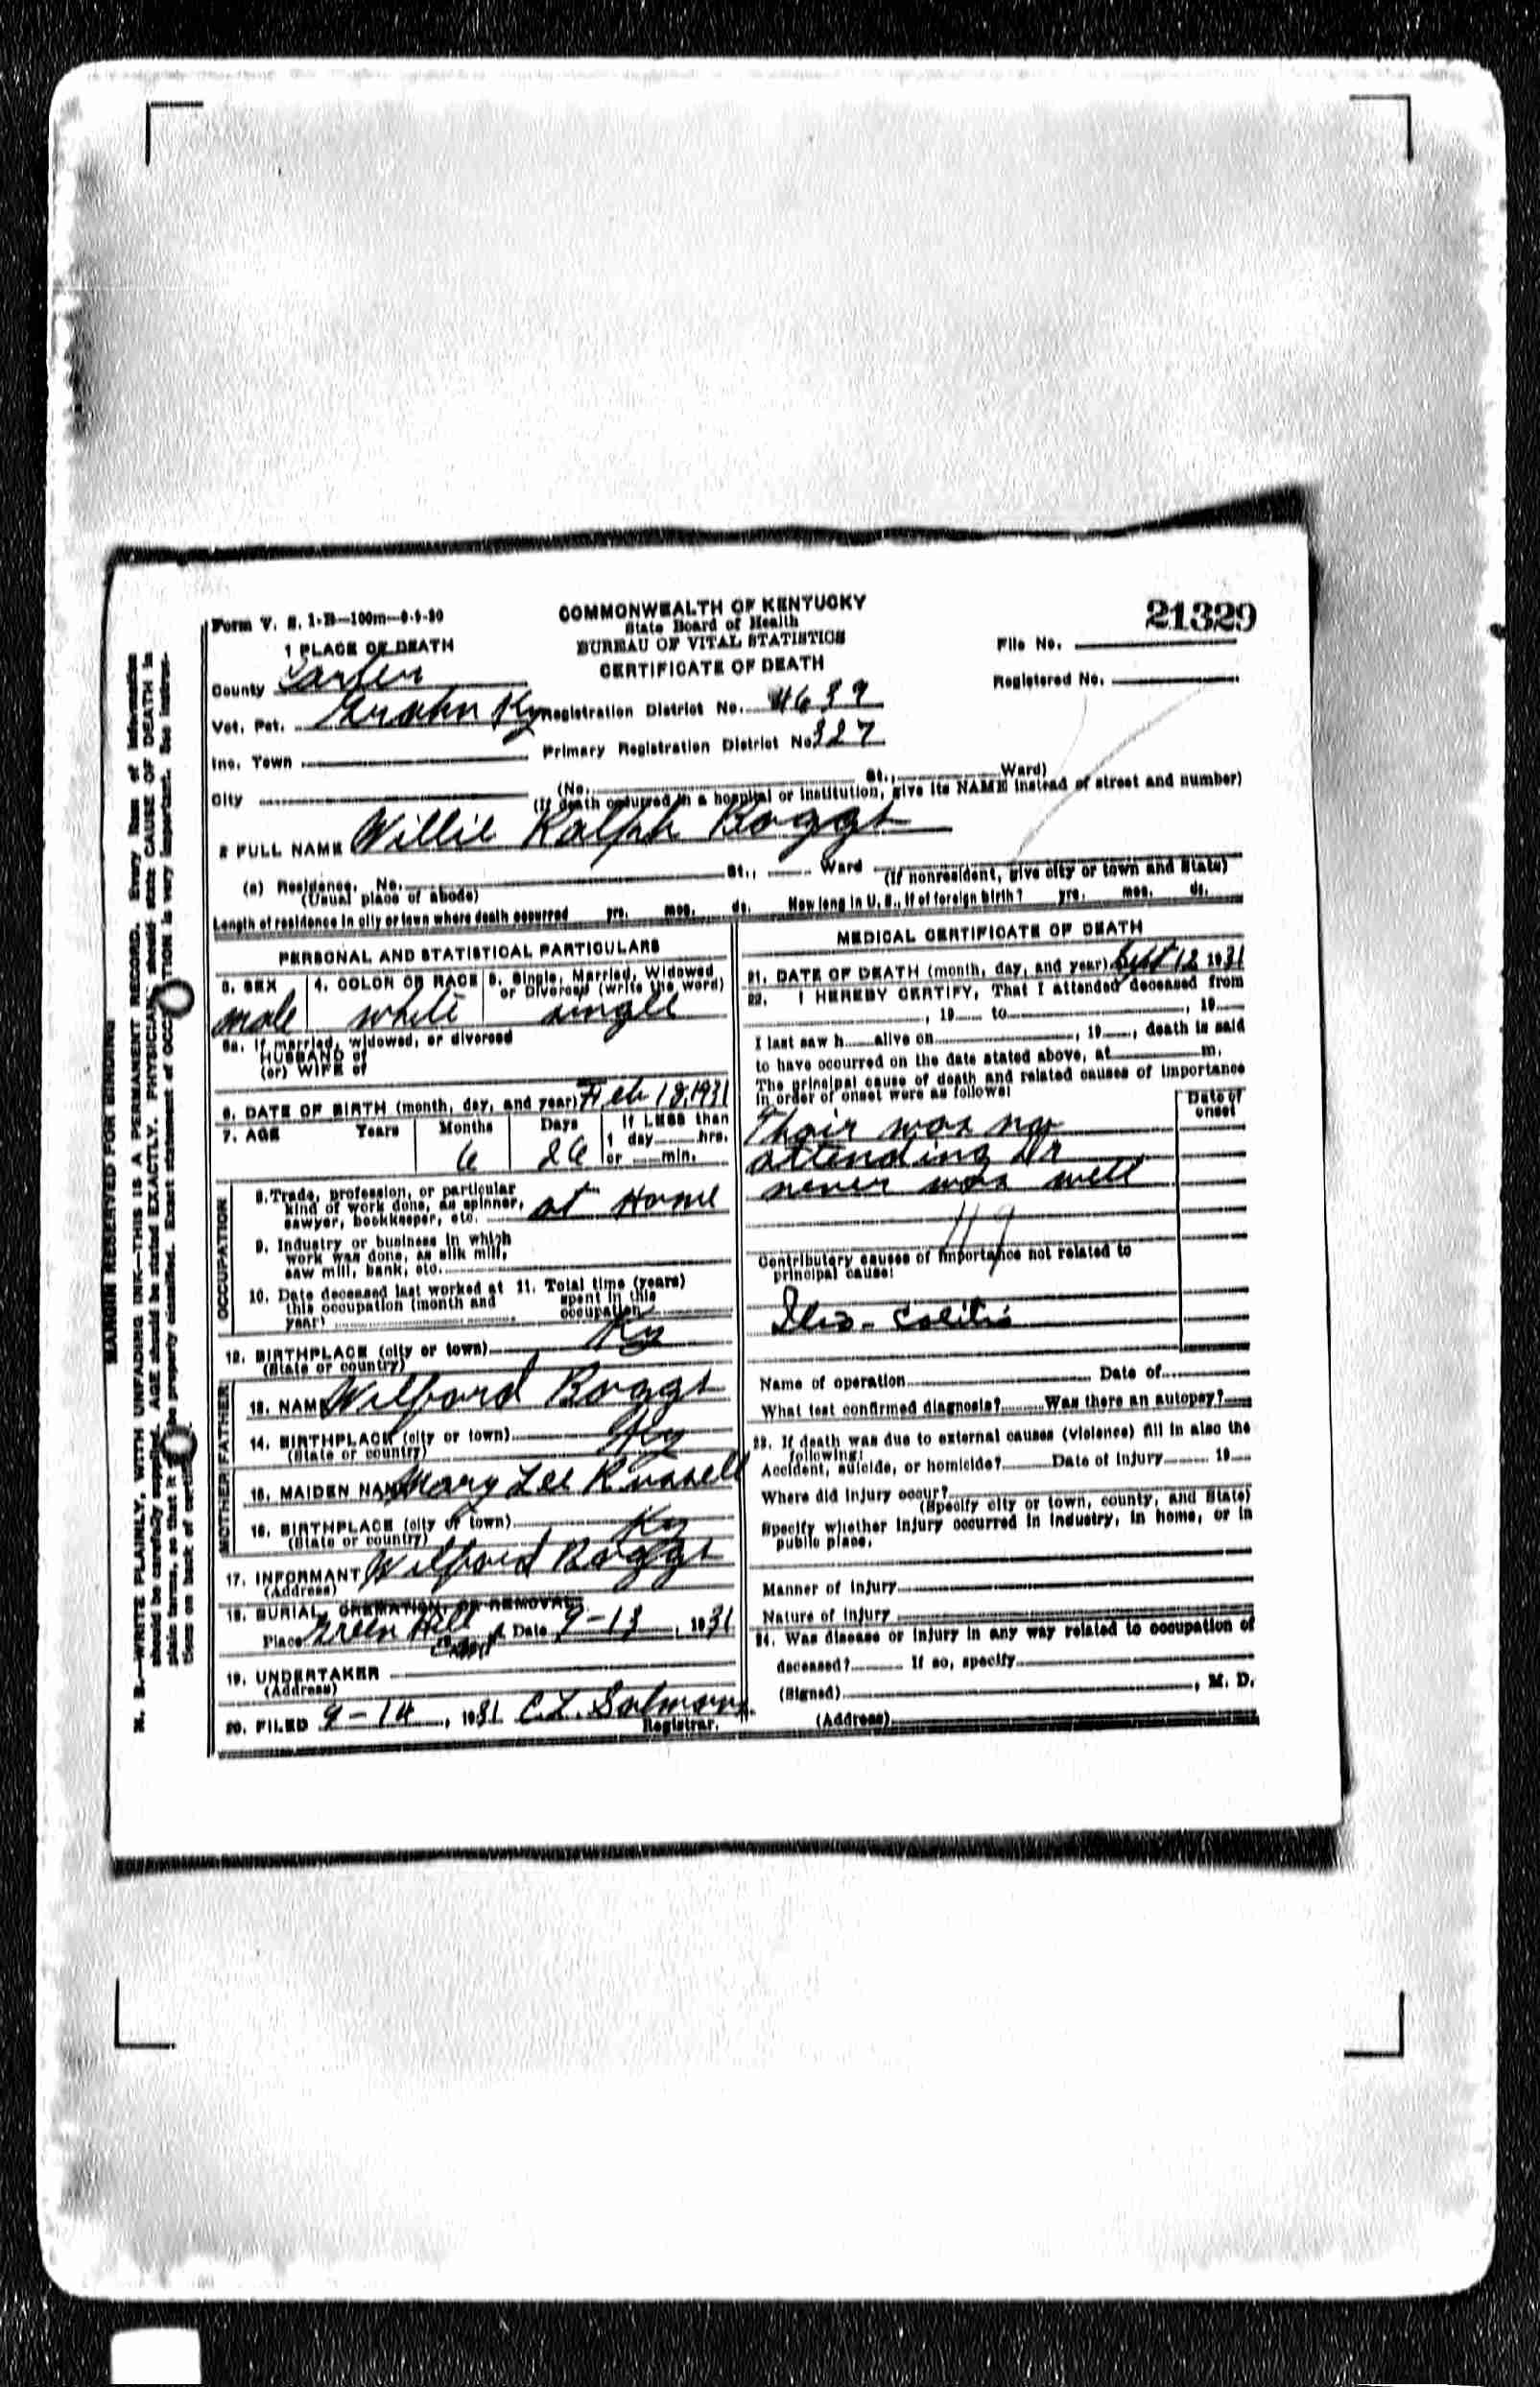 Form V. S. 1-B—100m—9-9-30
COMMONWEALTH OF KENTUCKY
State Board of Health
BUREAU OF VITAL STATISTICS
CERTIFICATE OF DEATH
21329
File No.
Registered No.
1 PLACE OF DEATH
County Carter
Vot. Pct. Grahn Ky Registration District No. 4639
Inc. Town Primary Registration District No. 327
City (No. St., Ward)
(If death occurred in a hospital or institution, give its NAME instead of street and number)
2 FULL NAME Willie Ralph Boggs
(a) Residence. No. St., Ward (If nonresident, give city or town and State)
(Usual place of abode)
Length of residence in city or town where death occurred yrs. mos. ds. How long in U. S., if of foreign birth? yrs. mos. ds.
PERSONAL AND STATISTICAL PARTICULARS
3. SEX male
4. COLOR OR RACE white
5. Single, Married, Widowed or Divorced (write the word) single
5a. If married, widowed, or divorced
HUSBAND of
(or) WIFE of
6. DATE OF BIRTH (month, day, and year) Feb 18, 1931
7. AGE Years Months Days If LESS than
1 day hrs.
6 26 or min.
OCCUPATION
8. Trade, profession, or particular
kind of work done, as spinner,
sawyer, bookkeeper, etc. at Home
9. Industry or business in which
work was done, as silk mill,
saw mill, bank, etc.
10. Date deceased last worked at
this occupation (month and
year)
11. Total time (years)
spent in this
occupation
12. BIRTHPLACE (city or town) Ky
(State or country)
FATHER
13. NAME Wilford Boggs
14. BIRTHPLACE (city or town) Ky
(State or country)
MOTHER
15. MAIDEN NAME Mary Lee Russell
16. BIRTHPLACE (city or town) Ky
(State or country)
17. INFORMANT Wilford Boggs
(Address)
18. BURIAL, CREMATION, OR REMOVAL
Place Green Hill Date 9-13, 1931
19. UNDERTAKER
(Address)
20. FILED 9-14, 1931 C. L. Salmons
Registrar.
MEDICAL CERTIFICATE OF DEATH
21. DATE OF DEATH (month, day, and year) Sept 12 1931
22. I HEREBY CERTIFY, That I attended deceased from
, 19 to , 19
I last saw h alive on , 19 , death is said
to have occurred on the date stated above, at m.
The principal cause of death and related causes of importance
in order of onset were as follows:
Date of
onset
Thair was no
attending Dr
never was well
119
Contributory causes of importance not related to
principal cause:
Ileo-Colitis
Name of operation Date of
What test confirmed diagnosis? Was there an autopsy?
23. If death was due to external causes (violence) fill in also the
following:
Accident, suicide, or homicide? Date of injury 19
Where did injury occur?
(Specify city or town, county, and State)
Specify whether injury occurred in industry, in home, or in
public place.
Manner of injury
Nature of injury
24. Was disease or injury in any way related to occupation of
deceased? If so, specify
(Signed) , M. D.
(Address)
MARGIN RESERVED FOR BINDING
N. B.—WRITE PLAINLY, WITH UNFADING INK—THIS IS A PERMANENT RECORD. Every item of information
should be carefully supplied. AGE should be stated EXACTLY. PHYSICIANS should state CAUSE OF DEATH in
plain terms, so that it may be properly classified. Exact statement of OCCUPATION is very important. See instruc-
tions on back of certificate.